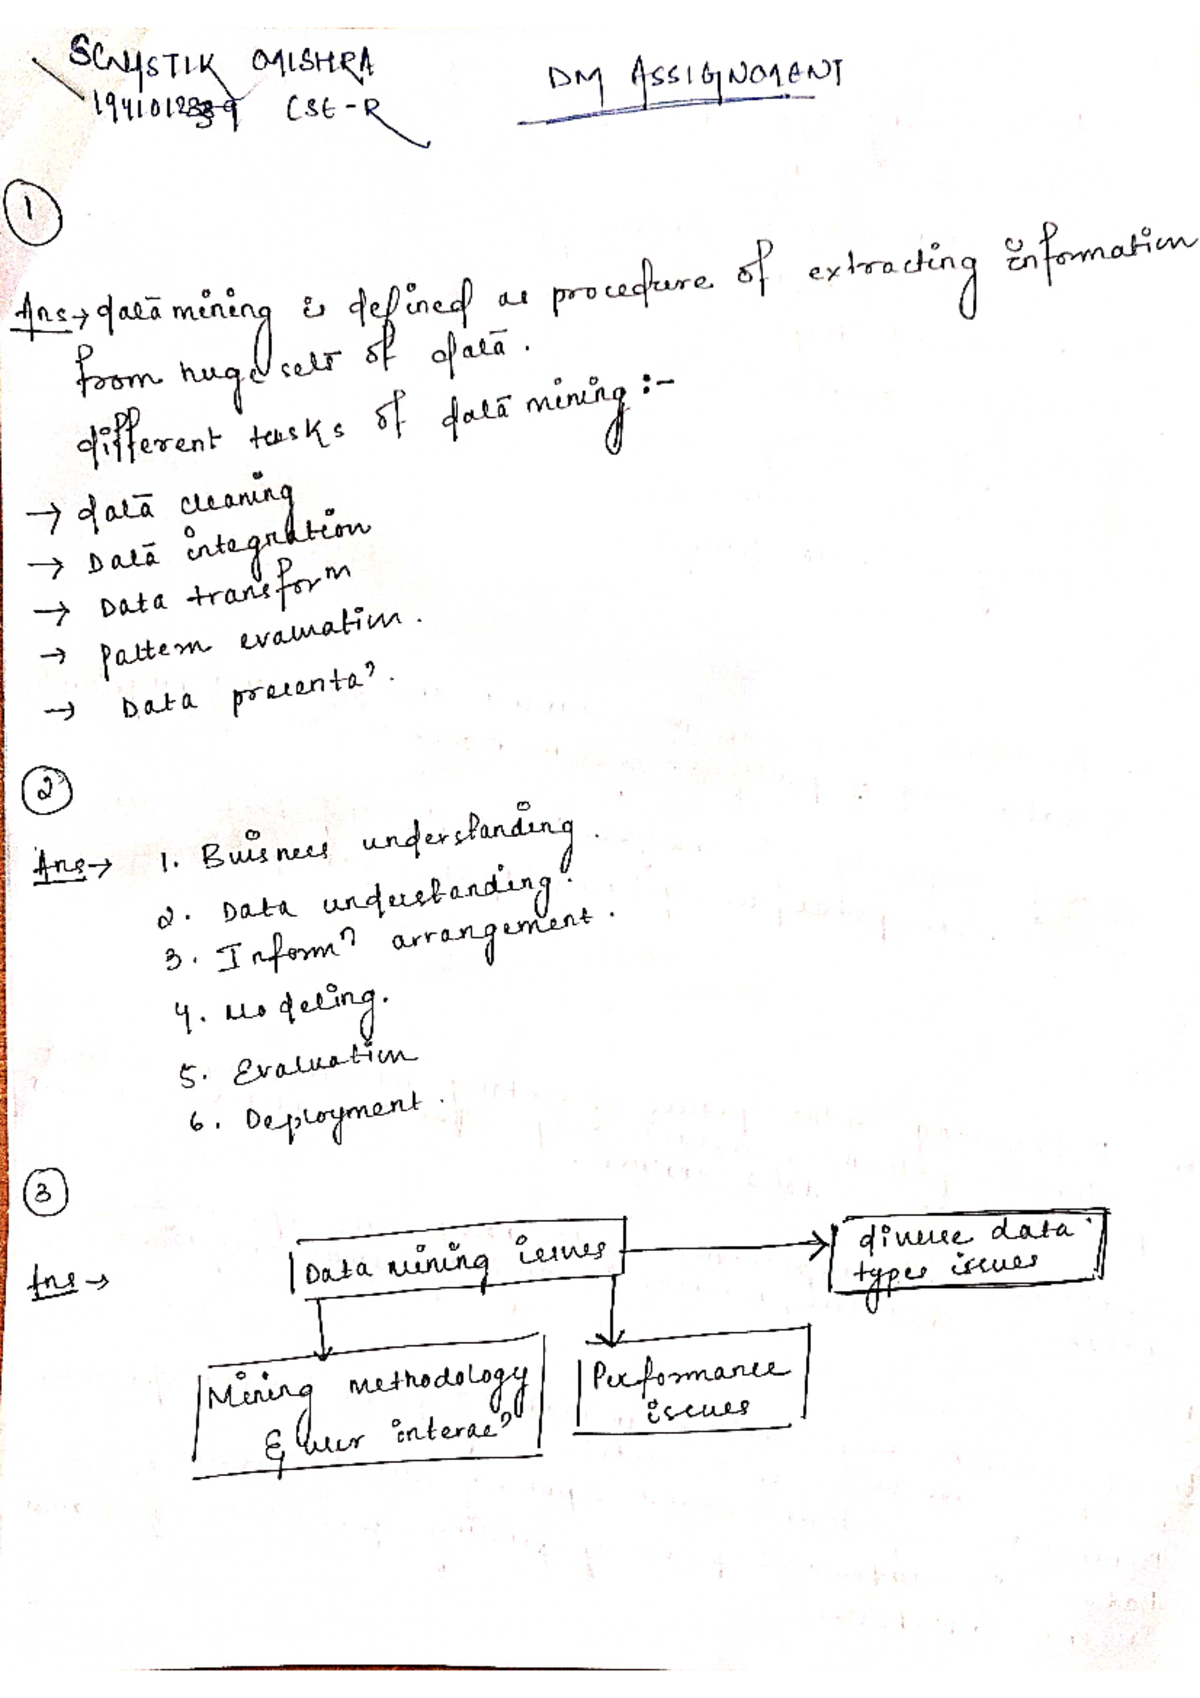 MISHRA
CSE-R
DM ASSIGNMENT
1
Ans→ data mining is defined as procedure of extracting information
from huge sets of data.
different tasks of data mining :-
→ data cleaning
→ Data integration
→ Data transform
→ Pattern evaluation.
→ Data presentaⁿ.
2
Ans→ 1. Buisness understanding.
2. Data understanding.
3. Informⁿ arrangement.
4. Modeling.
5. Evaluation
6. Deployment.
3
Ans→
Data mining issues
diverse data
types issues
Mining methodology
& user interacⁿ
Performance
issues